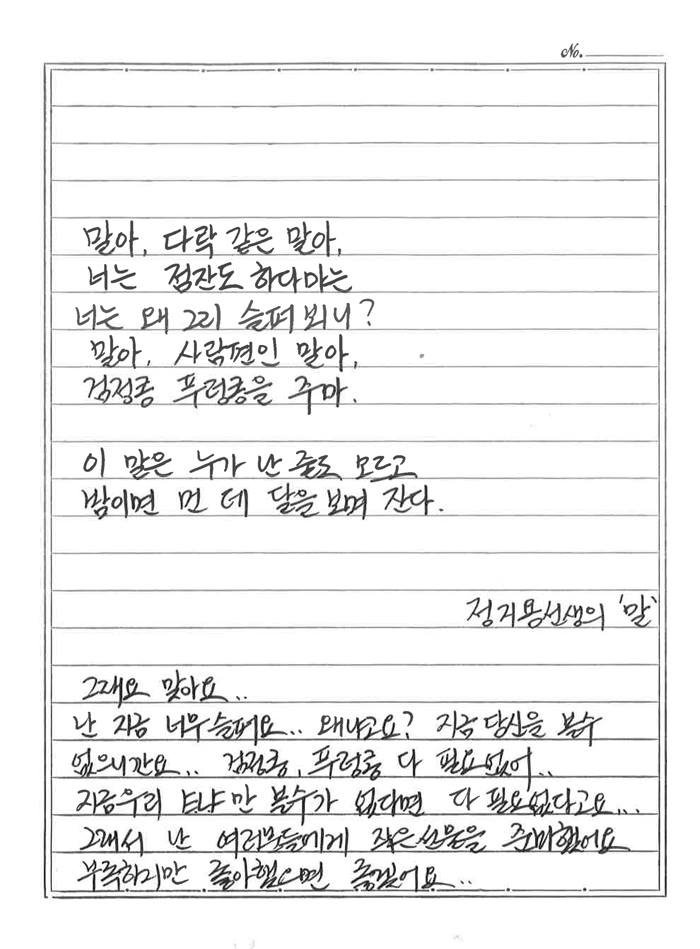 No.
말아, 다락 같은 말아,
너는 점잔도 하다마는
너는 왜 그리 슬퍼 뵈니?
말아, 사람편인 말아,
검정콩 푸렁콩을 주마.
이 말은 누가 난 줄도 모르고
밤이면 먼 데 달을 보며 잔다.
정지용선생의 '말'
그래요 맞아요..
난 지금 너무 슬퍼요.. 왜냐고요? 지금 당신을 볼수
없으니깐요.. 검정콩, 푸렁콩 다 필요없어..
지금우리 만 볼수가 없다면 다 필요없다고요...
그래서 난 여러분들에게 작은선물을 준비했어요
부족하지만 좋아했으면 좋겠어요..